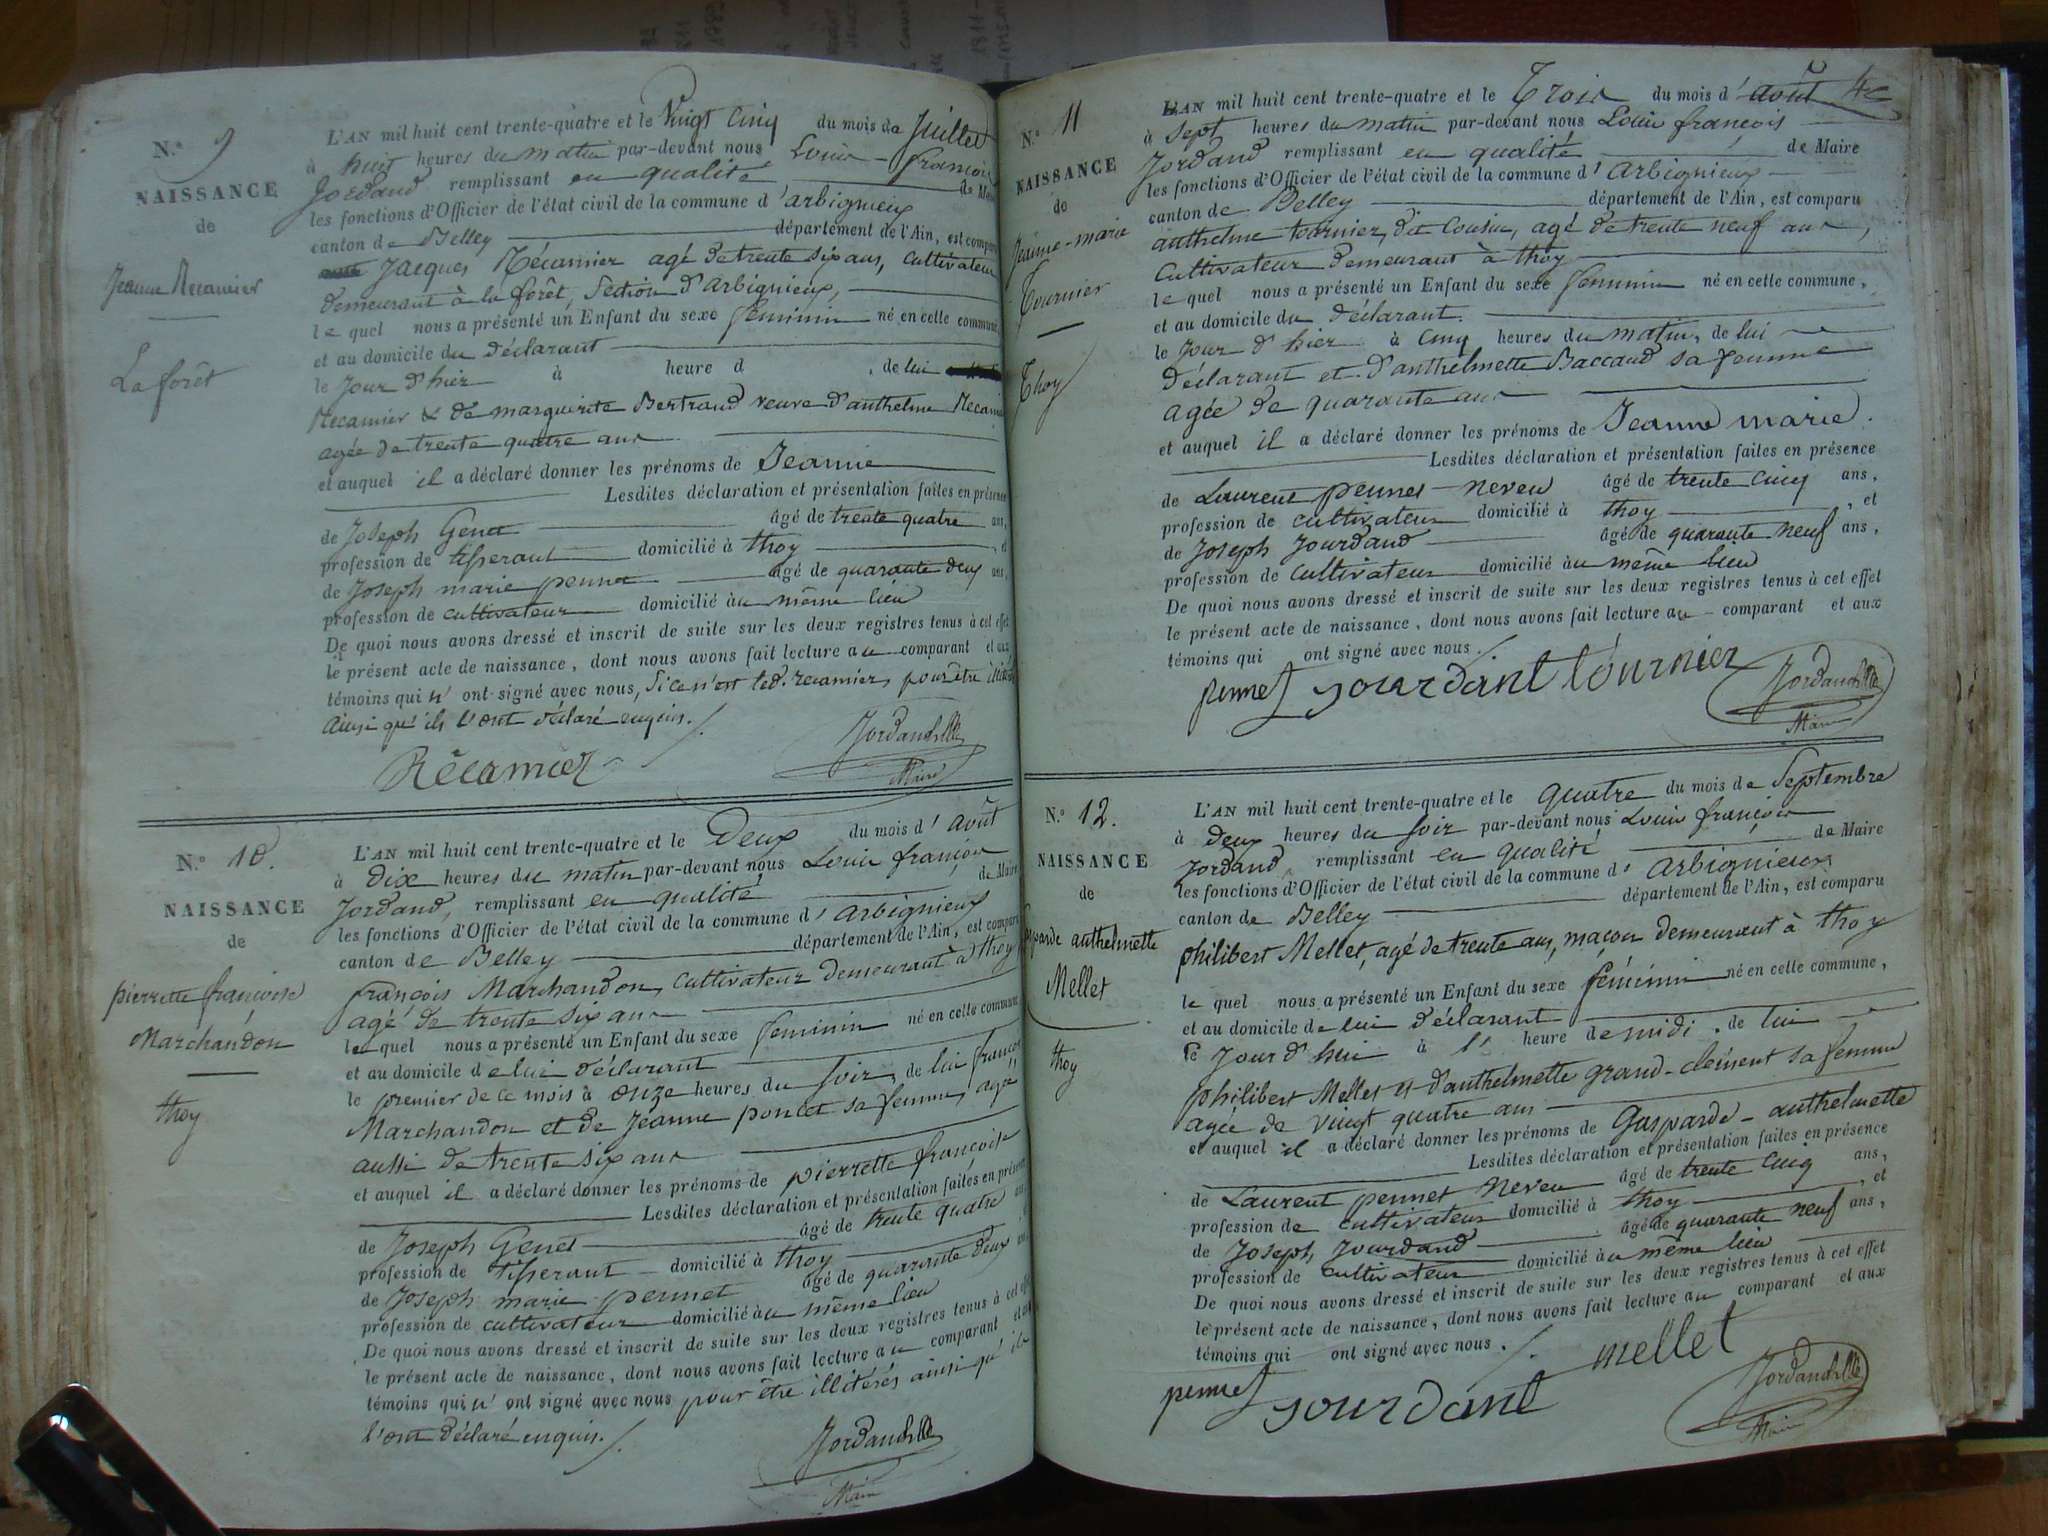 N.° 9
NAISSANCE
de
Jeanne Recamier
La forêt
L'AN mil huit cent trente-quatre et le Vingt Cinq du mois de Juillet
à huit heures du matin par-devant nous Louis-françois
Jordand remplissant en qualité de Maire
les fonctions d'Officier de l'état civil de la commune d'arbignieux
canton de Belley département de l'Ain, est comparu
Jacques Récamier agé de trente six ans, Cultivateur
demeurant à la forêt, Section d'arbignieux,
le quel nous a présenté un Enfant du sexe feminin né en cette commune,
et au domicile du déclarant
le jour d'hier à heure d , de lui
Recamier & de marguerite Bertrand veuve d'anthelme Recamier
agée de trente quatre ans
et auquel il a déclaré donner les prénoms de Jeanne
Lesdites déclaration et présentation faites en présence
de Joseph Genet âgé de trente quatre ans,
profession de tisserant domicilié à thoy , et
de Joseph marie pennet âgé de quarante deux ans,
profession de cultivateur domicilié au même lieu
De quoi nous avons dressé et inscrit de suite sur les deux registres tenus à cet effet
le présent acte de naissance, dont nous avons fait lecture au comparant et aux
témoins qui n'ont signé avec nous, Si ce n'est led. recamier, pour être
ainsi qu'ils l'ont déclaré enquis.
Récamier
Jordand
Maire
N.° 10.
NAISSANCE
de
pierrette françoise
Marchandon
thoy
L'AN mil huit cent trente-quatre et le Deux du mois d'Août
à Dix heures du matin par-devant nous Louis françois
Jordand, remplissant en qualité de Maire
les fonctions d'Officier de l'état civil de la commune d'arbignieux
canton de Belley département de l'Ain, est comparu
françois Marchandon, cultivateur demeurant à thoy
agé de trente six ans
le quel nous a présenté un Enfant du sexe feminin né en cette commune
et au domicile de lui déclarant
le premier de ce mois à onze heures du soir, de lui françois
Marchandon et de Jeanne poncet sa femme, agée
aussi de trente six ans
et auquel il a déclaré donner les prénoms de pierrette françoise
Lesdites déclaration et présentation faites en présence
de Joseph Genet âgé de trente quatre ans,
profession de tisserant domicilié à thoy
de Joseph marie pennet âgé de quarante deux ans,
profession de cultivateur domicilié au même lieu
De quoi nous avons dressé et inscrit de suite sur les deux registres tenus à cet effet
le présent acte de naissance, dont nous avons fait lecture au comparant et aux
témoins qui n'ont signé avec nous pour être illitérés ainsi qu'ils
l'ont déclaré enquis.
Jordand
Maire
N.° 11
NAISSANCE
de
Jeanne-marie
Tournier
Thoy
L'AN mil huit cent trente-quatre et le Trois du mois d'août
à Sept heures du matin par-devant nous Louis françois
Jordand remplissant en qualité de Maire
les fonctions d'Officier de l'état civil de la commune d'Arbignieux
canton de Belley département de l'Ain, est comparu
anthelme tournier, dit Cousin, agé de trente neuf ans,
Cultivateur demeurant à thoy
le quel nous a présenté un Enfant du sexe feminin né en cette commune,
et au domicile du déclarant.
le jour d'hier à cinq heures du matin, de lui
déclarant et d'anthelmette Baccand sa femme
agée de quarante ans
et auquel il a déclaré donner les prénoms de Jeanne marie.
Lesdites déclaration et présentation faites en présence
de Laurent pennet-neveu âgé de trente cinq ans,
profession de cultivateur domicilié à thoy , et
de Joseph Jourdand âgé de quarante neuf ans,
profession de cultivateur domicilié au même lieu
De quoi nous avons dressé et inscrit de suite sur les deux registres tenus à cet effet
le présent acte de naissance, dont nous avons fait lecture au comparant et aux
témoins qui ont signé avec nous.
pennet jourdant tournier
Jordand
Maire
N.° 12.
NAISSANCE
de
Gasparde anthelmette
Mellet
thoy
L'AN mil huit cent trente-quatre et le quatre du mois de Septembre
à deux heures du soir par-devant nous Louis françois
Jordand, remplissant en qualité de Maire
les fonctions d'Officier de l'état civil de la commune d'Arbignieux
canton de Belley département de l'Ain, est comparu
philibert Mellet, agé de trente ans, maçon demeurant à thoy
le quel nous a présenté un Enfant du sexe féminin né en cette commune,
et au domicile de lui déclarant
le jour d'hui à l' heure de midi. de lui
philibert Mellet et d'anthelmette grand-clément sa femme
agée de vingt quatre ans
et auquel il a déclaré donner les prénoms de Gasparde-anthelmette
Lesdites déclaration et présentation faites en présence
de Laurent pennet Neveu âgé de trente cinq ans,
profession de cultivateur domicilié à thoy , et
de Joseph Jourdand âgé de quarante neuf ans,
profession de cultivateur domicilié au même lieu
De quoi nous avons dressé et inscrit de suite sur les deux registres tenus à cet effet
le présent acte de naissance, dont nous avons fait lecture au comparant et aux
témoins qui ont signé avec nous.
mellet
pennet jourdant
Jordand
Maire